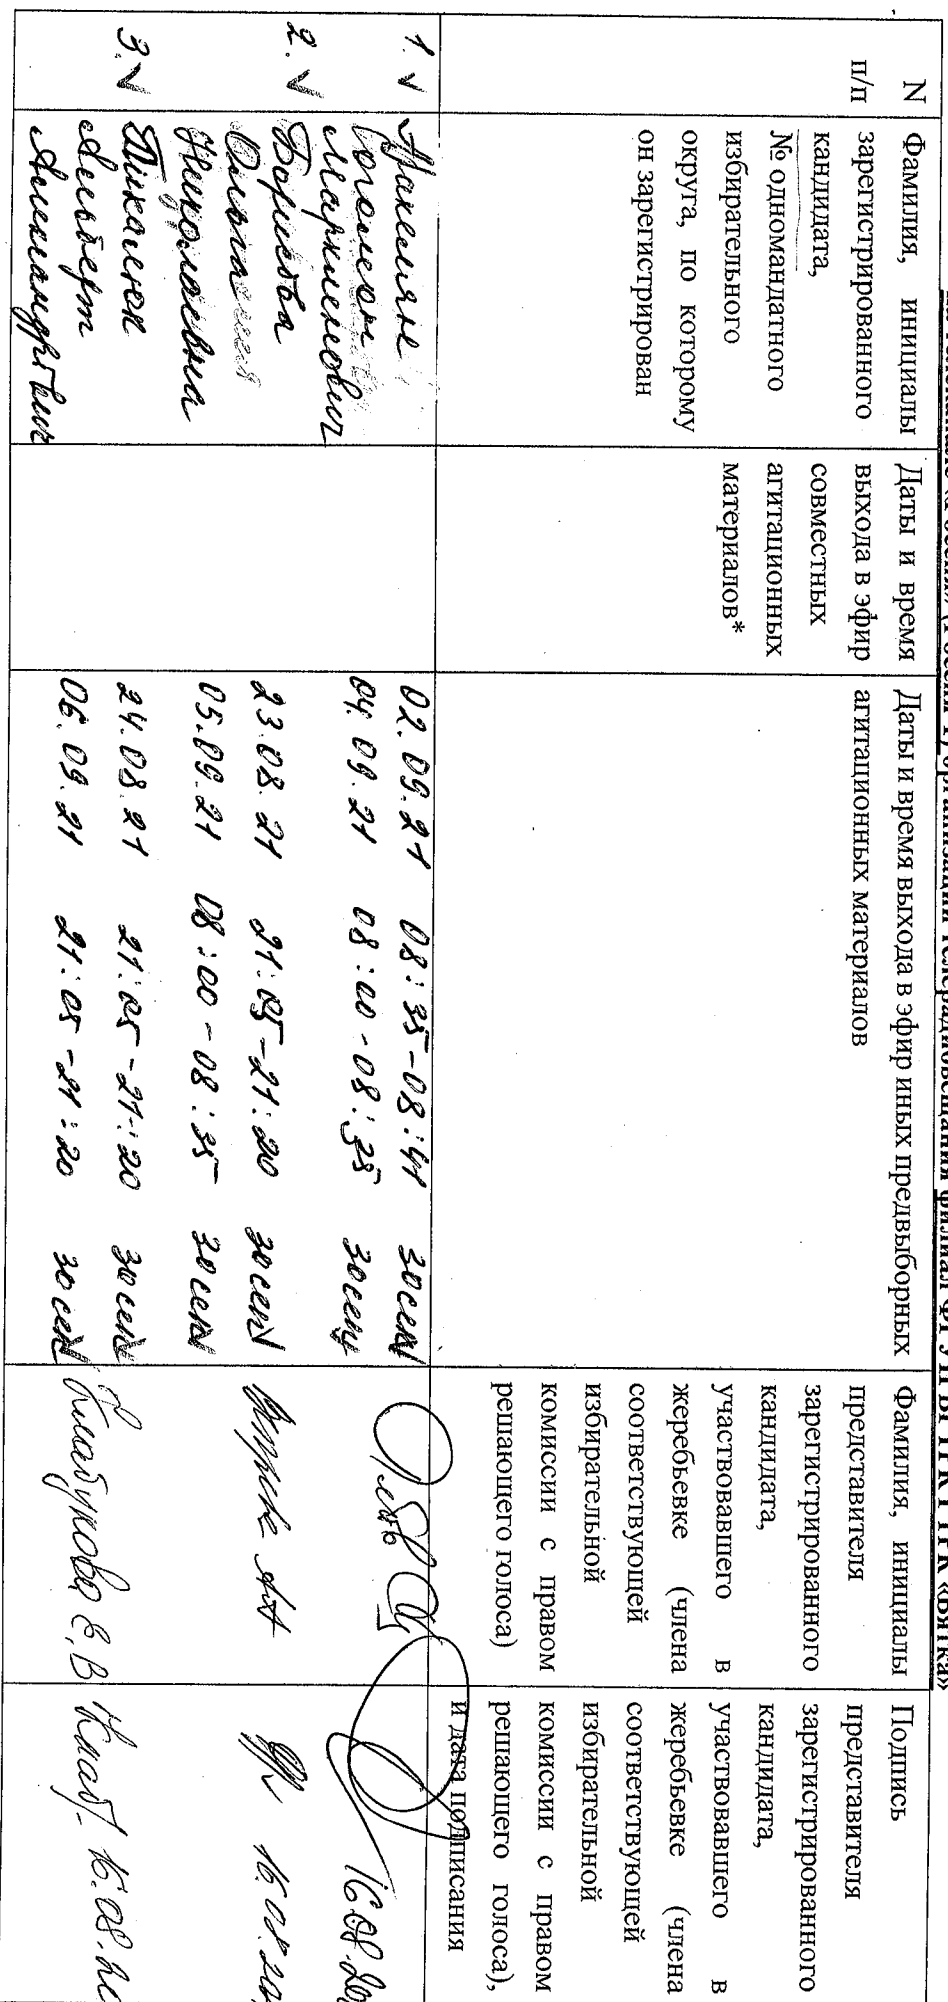 филиал ФГУП ВГТРК ГТРК «Вятка»
N
п/п
Фамилия, инициалы
зарегистрированного
кандидата,
№ одномандатного
избирательного
округа, по которому
он зарегистрирован
Даты и время
выхода в эфир
совместных
агитационных
материалов*
Даты и время выхода в эфир иных предвыборных
агитационных материалов
Фамилия, инициалы
представителя
зарегистрированного
кандидата,
участвовавшего в
жеребьевке (члена
соответствующей
избирательной
комиссии с правом
решающего голоса)
Подпись
представителя
зарегистрированного
кандидата,
участвовавшего в
жеребьевке (члена
соответствующей
избирательной
комиссии с правом
решающего голоса),
и дата подписания
1.
02.09.21 08:35-08:41 30сек
04.09.21 08:00-08:35 30сек
16.08.20
2.
Борисова
Ольга
Николаевна
23.08.21 21:05-21:20 30сек
05.09.21 08:00-08:35 30сек
16.08.20
3.
Альберт
Александрович
24.08.21 21:05-21:20 30сек
06.09.21 21:05-21:20 30сек
16.08.20